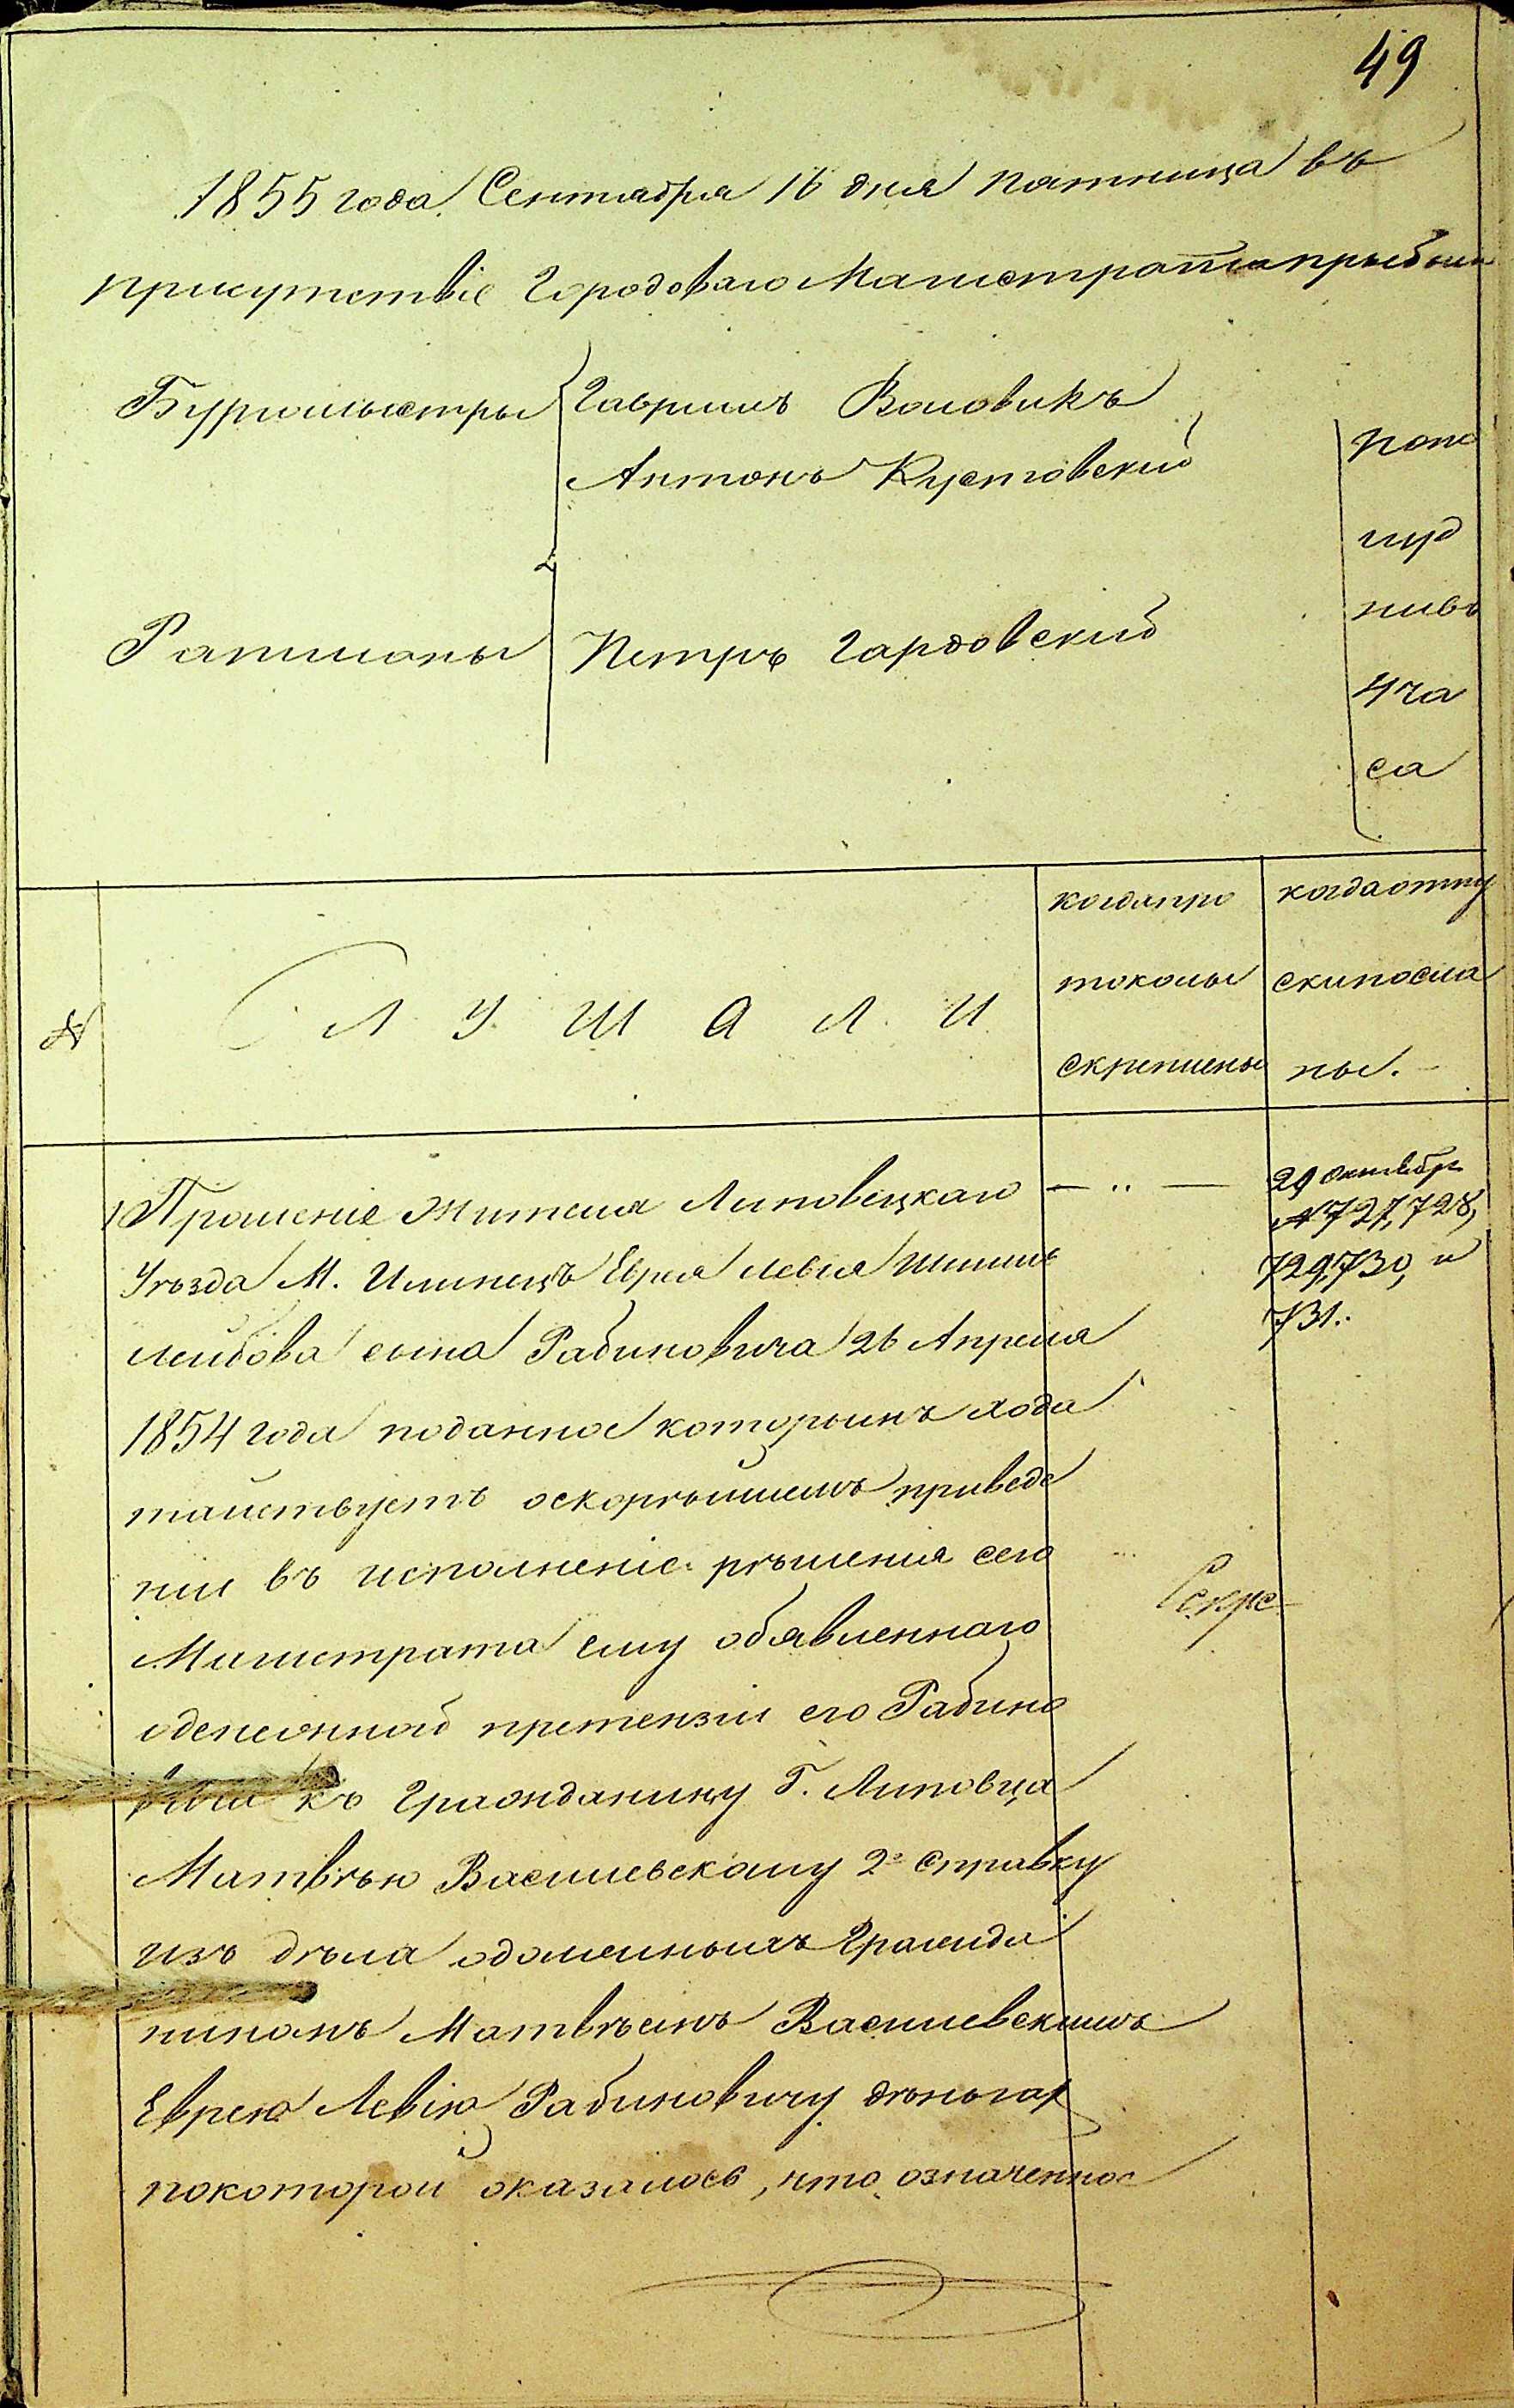 49
1855 года Сентября 16 дня пятница въ
присутствіе Городоваго Магистрата прыбыли
Бургомыстры Гаврыилъ Воловикъ
Антонъ Кустовскій
Ратманы Петръ Гардовскій
попо
луд
нивъ
4 ча
са
№
СЛУШАЛИ
когда про
токолы
скреплены
когда отпу
ски посла
ны.
1 Прошеніе Жителя Липовецкаго
Уѣзда М. Илинецъ Еврея Левія
Лейбова сына Рабиновича 26 Апреля
1854 года поданное которымъ хода
тайствуетъ о скорѣйшемъ приведе
ніи въ исполненіе рѣшенія сего
Магистрата ему обявленнаго
о денежной претензіи его Рабино
вича къ Гражданину Г. Липовца
Матвѣю Василевскому 2е Справку
изъ дѣла о должныхъ Гражда
ниномъ Матвѣемъ Василевскимъ
Еврею Левію Рабиновичу дѣньгах
по которой оказалось, что означенное
— .. —
29 октябр
№ 727, 728,
729, 730, и
731.
Секре